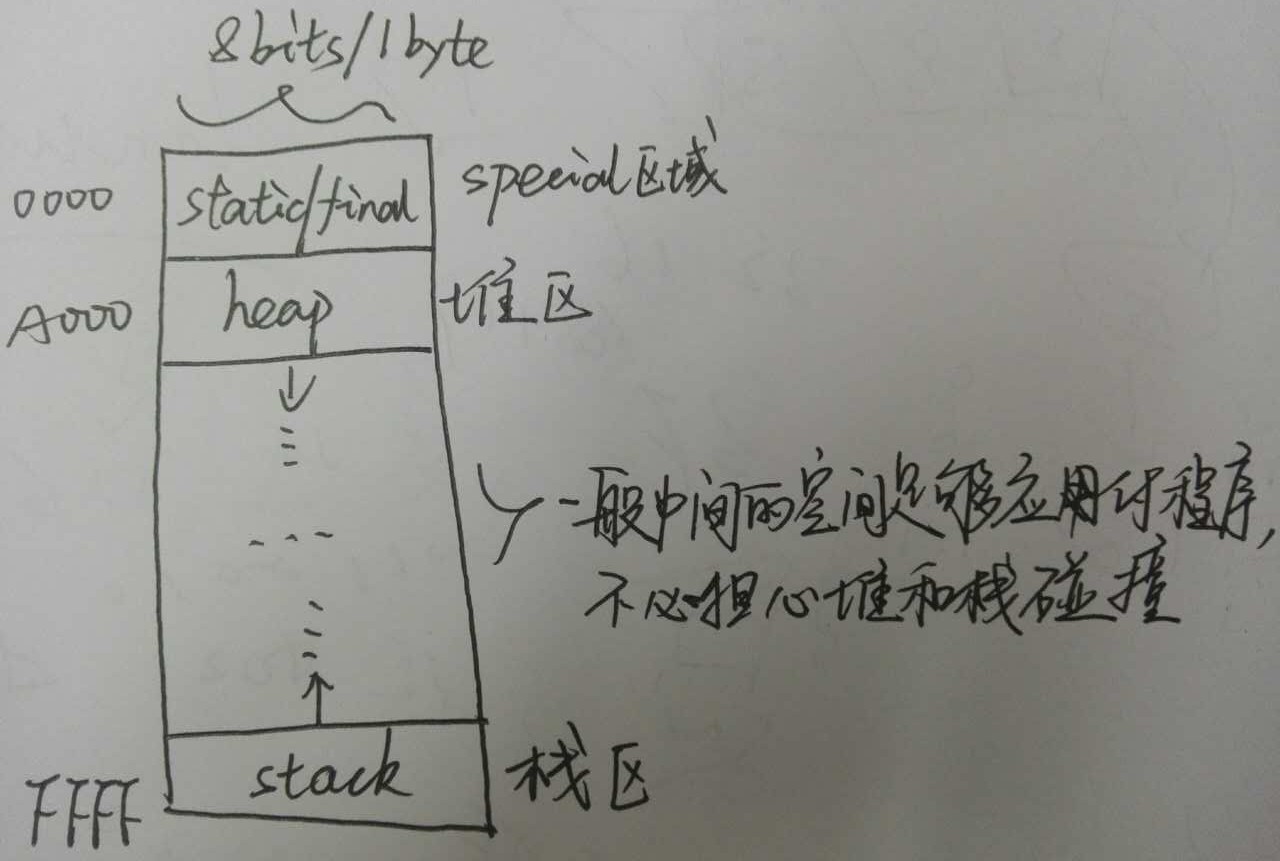 8bits/1byte
0000 static/final special区域
A000 heap 堆区
一般中间的空间足够应用付程序,
不必担心堆和栈碰撞
stack 栈区
FFFF